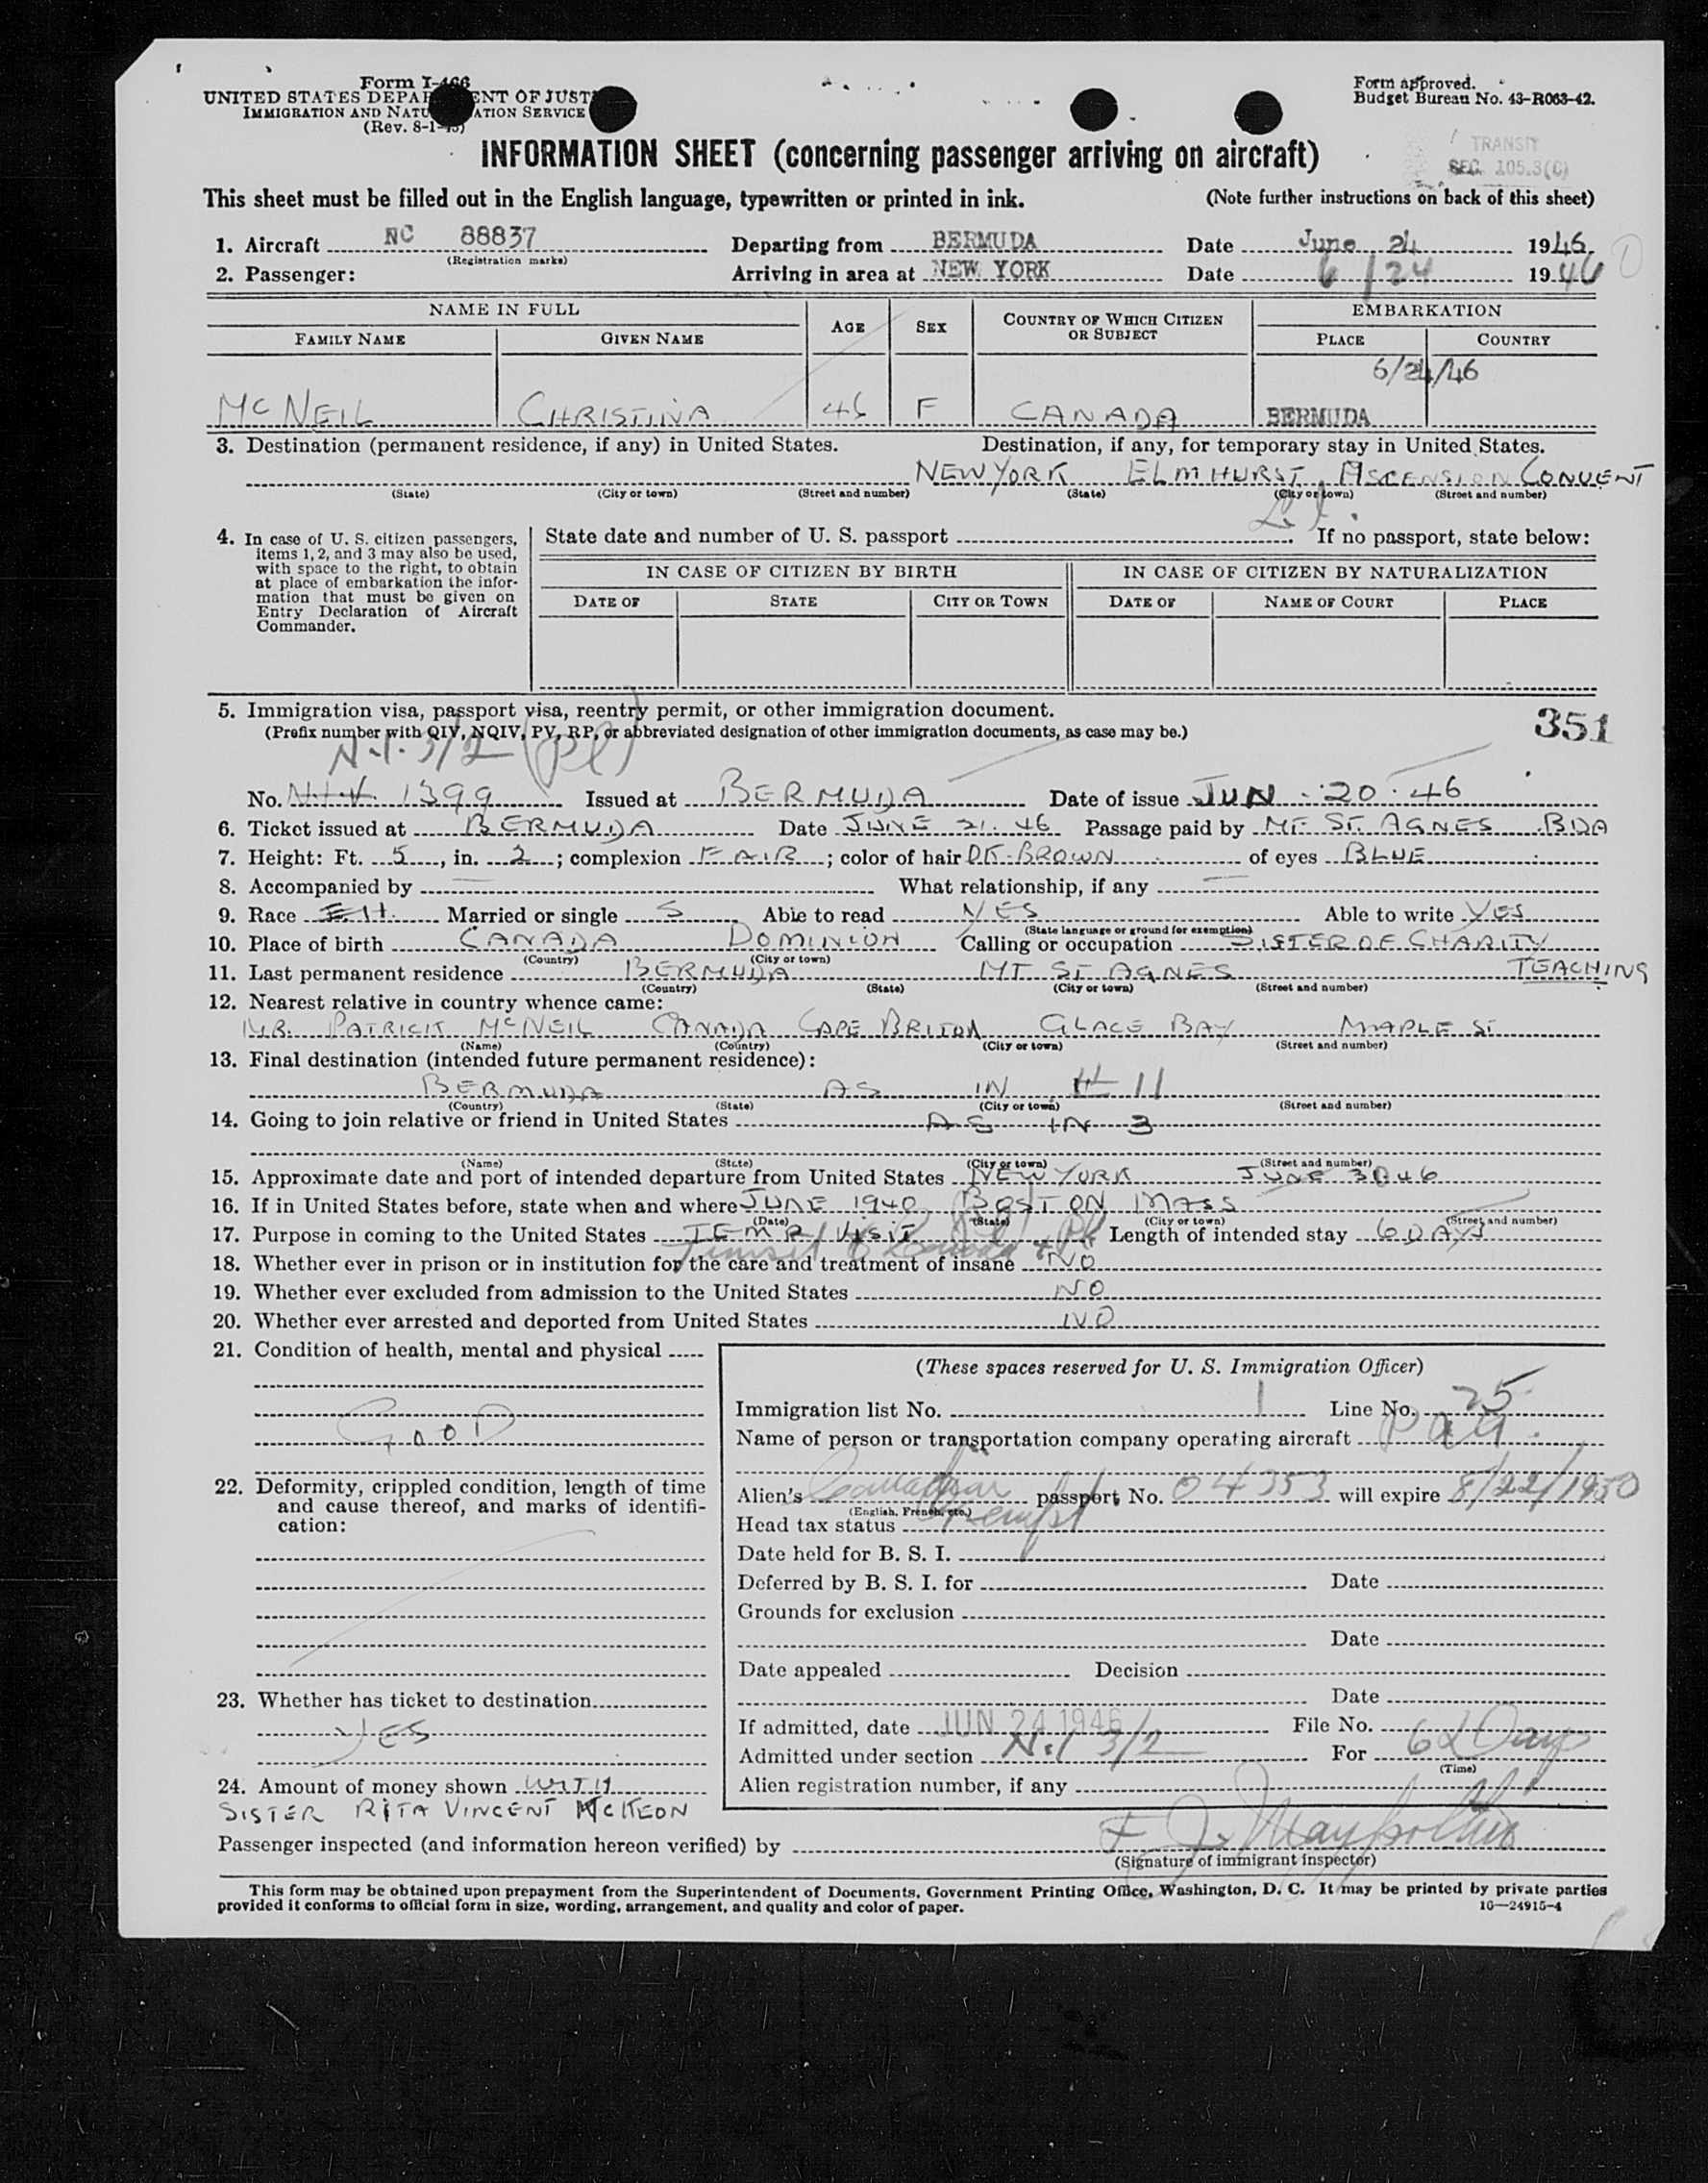 Form I-466
UNITED STATES DEPARTMENT OF JUSTICE
IMMIGRATION AND NATURALIZATION SERVICE
(Rev. 8-1-45)
Form approved.
Budget Bureau No. 43-R063-42.
TRANSIT
SEC. 105.3(C)
INFORMATION SHEET (concerning passenger arriving on aircraft)
This sheet must be filled out in the English language, typewritten or printed in ink. (Note further instructions on back of this sheet)
1. Aircraft NC 88837 Departing from BERMUDA Date June 24 1946
(Registration marks)
2. Passenger: Arriving in area at NEW YORK Date 6/24 1946
NAME IN FULL AGE SEX COUNTRY OF WHICH CITIZEN OR SUBJECT EMBARKATION
FAMILY NAME GIVEN NAME PLACE COUNTRY
6/24/46
MCNEIL CHRISTINA 46 F CANADA BERMUDA
3. Destination (permanent residence, if any) in United States. Destination, if any, for temporary stay in United States.
NEW YORK ELMHURST ASCENSION CONVENT
(State) (City or town) (Street and number) (State) (City or town) (Street and number)
L.I.
4. In case of U. S. citizen passengers, items 1, 2, and 3 may also be used, with space to the right, to obtain at place of embarkation the information that must be given on Entry Declaration of Aircraft Commander.
State date and number of U. S. passport . If no passport, state below:
IN CASE OF CITIZEN BY BIRTH IN CASE OF CITIZEN BY NATURALIZATION
DATE OF STATE CITY OR TOWN DATE OF NAME OF COURT PLACE
5. Immigration visa, passport visa, reentry permit, or other immigration document.
(Prefix number with QIV, NQIV, PV, RP, or abbreviated designation of other immigration documents, as case may be.)
351
N.I. 3/2 (Pl)
No. N.I.V. 1399 Issued at BERMUDA Date of issue JUN 20.46
6. Ticket issued at BERMUDA Date JUNE 21.46 Passage paid by MT ST. AGNES BDA
7. Height: Ft. 5, in. 2; complexion FAIR; color of hair DK. BROWN of eyes BLUE
8. Accompanied by — What relationship, if any —
9. Race Married or single S Able to read YES Able to write YES
(State language or ground for exemption)
10. Place of birth CANADA DOMINION Calling or occupation SISTER OF CHARITY
(Country) (City or town)
TEACHING
11. Last permanent residence BERMUDA MT ST AGNES
(Country) (State) (City or town) (Street and number)
12. Nearest relative in country whence came:
MR. PATRICK MCNEIL CANADA CAPE BRITON GLACE BAY MAPLE ST
(Name) (Country) (City or town) (Street and number)
13. Final destination (intended future permanent residence):
BERMUDA AS IN # 11
(Country) (State) (City or town) (Street and number)
14. Going to join relative or friend in United States AS IN 3
(Name) (State) (City or town) (Street and number)
15. Approximate date and port of intended departure from United States NEW YORK JUNE 30 46
16. If in United States before, state when and where JUNE 1940 BOSTON MASS
(Date) (State) (City or town) (Street and number)
17. Purpose in coming to the United States TEMP. VISIT Length of intended stay 6 DAYS
18. Whether ever in prison or in institution for the care and treatment of insane NO
19. Whether ever excluded from admission to the United States NO
20. Whether ever arrested and deported from United States NO
21. Condition of health, mental and physical
GOOD
22. Deformity, crippled condition, length of time and cause thereof, and marks of identification:
23. Whether has ticket to destination
YES
24. Amount of money shown WITH
SISTER RITA VINCENT MCKEON
(These spaces reserved for U. S. Immigration Officer)
Immigration list No. 1 Line No. 25
Name of person or transportation company operating aircraft PAA.
Alien's Canadian passport No. 04353 will expire 8/22/1950
(English, French, etc.)
Head tax status Exempt
Date held for B. S. I.
Deferred by B. S. I. for Date
Grounds for exclusion
Date
Date appealed Decision
Date
If admitted, date JUN 24 1946 File No.
Admitted under section N.I 3/2 For Days
(Time)
Alien registration number, if any
Passenger inspected (and information hereon verified) by
(Signature of immigrant inspector)
This form may be obtained upon prepayment from the Superintendent of Documents, Government Printing Office, Washington, D. C. It may be printed by private parties
provided it conforms to official form in size, wording, arrangement, and quality and color of paper. 16—24915-4